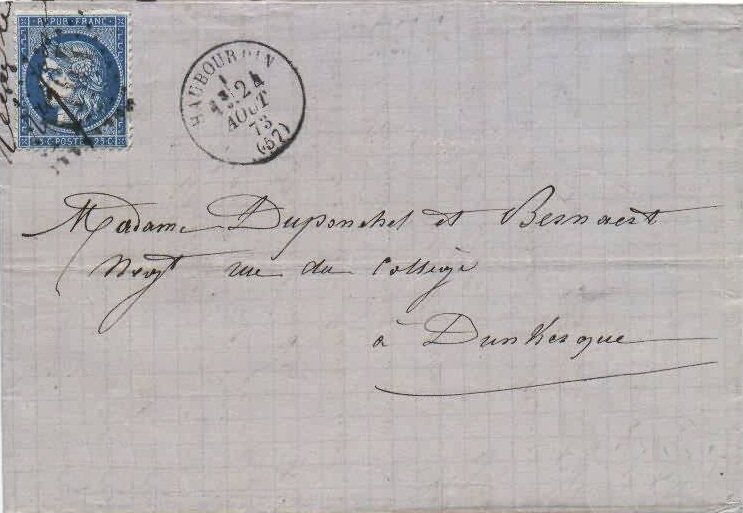 REPUB FRANC
25 C POSTE 25 C
HAUBOURDIN
24
AOUT
73
(57)
Madame Duponchel et Bernaert
Nég^t rue du Collège
à Dunkerque